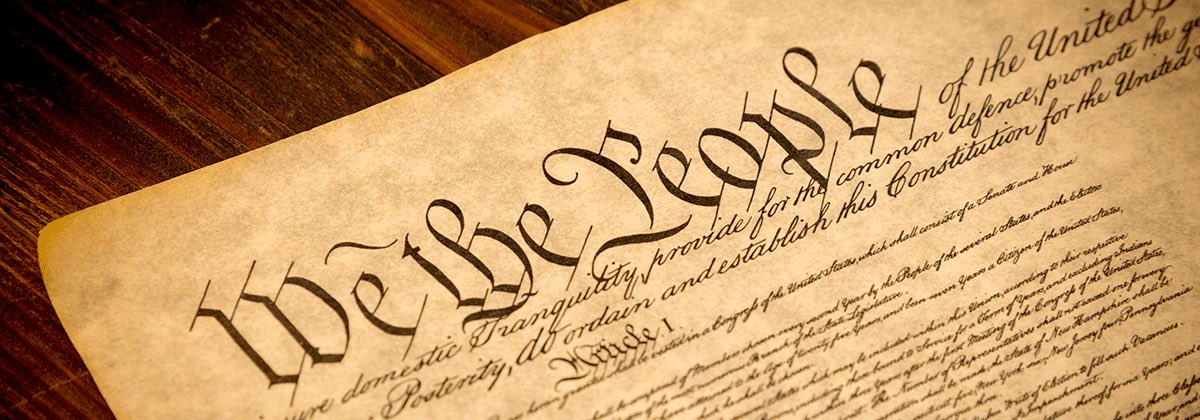 We the People of the United S
ure domestic Tranquility, provide for the common defence, promote the ge
Posterity, do ordain and establish this Constitution for the United S
Article I
vested in a Congress of the United States, which shall consist of a Senate and Hous
composed of Members chosen every second Year by the People of the several States, and the Electors
numerous Branch of the State Legislature.
to the Age of twenty five Years, and been seven Years a Citizen of the United States,
shall be chosen.
States which may be included within this Union, according to their respective
including those bound to Service for a Term of Years, and excluding Indians
Years after the first Meeting of the Congress of the United States,
The Number of Representatives shall not exceed one for every
shall be made, the State of New Hampshire shall be
five, New York six, New Jersey four, Pennsylvania
Writs of Election to fill such Vacancies.
Impeachment.
thereof for six Years; and